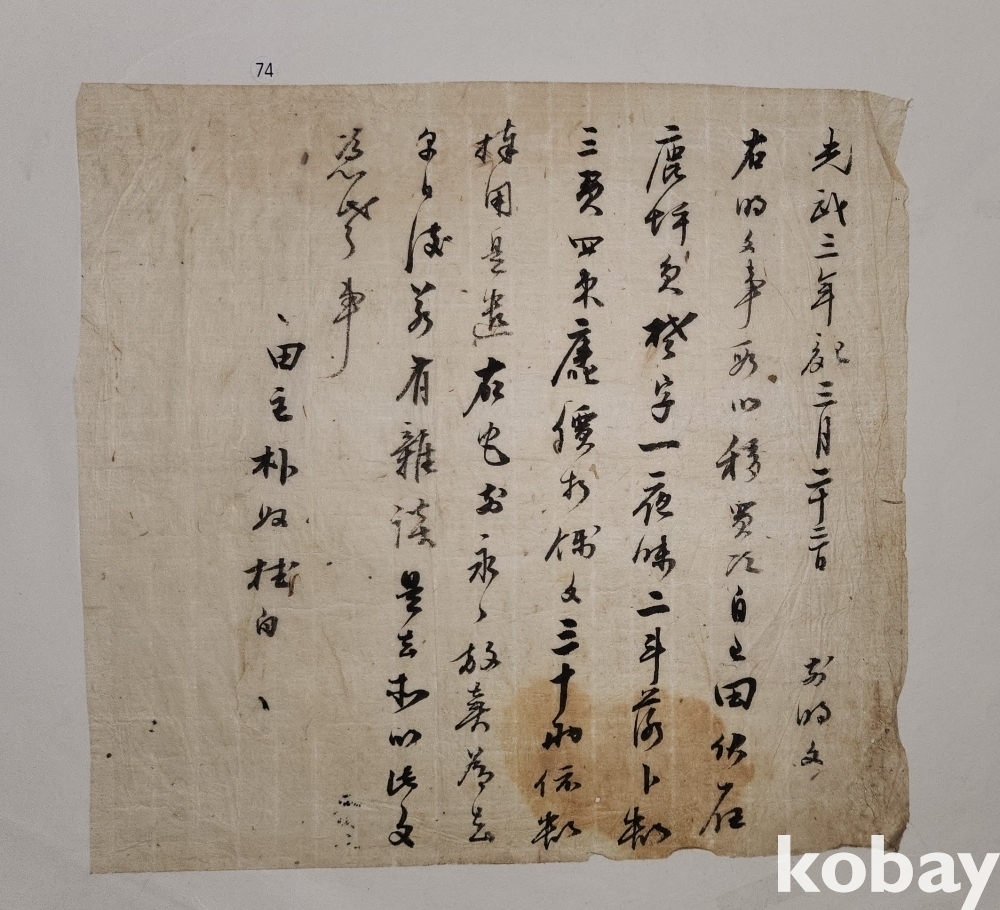 74
光武三年三月二十二日 前明文
右明文事段以移買次自己田伏在
鹿坪員楚字一夜味二斗落卜數
三負四束價折錢文三十兩依數
捧用是遣右宅前永〻放賣爲去
乎日後若有雜談是去等以此文
憑考事
田主朴奴桂白
kobay